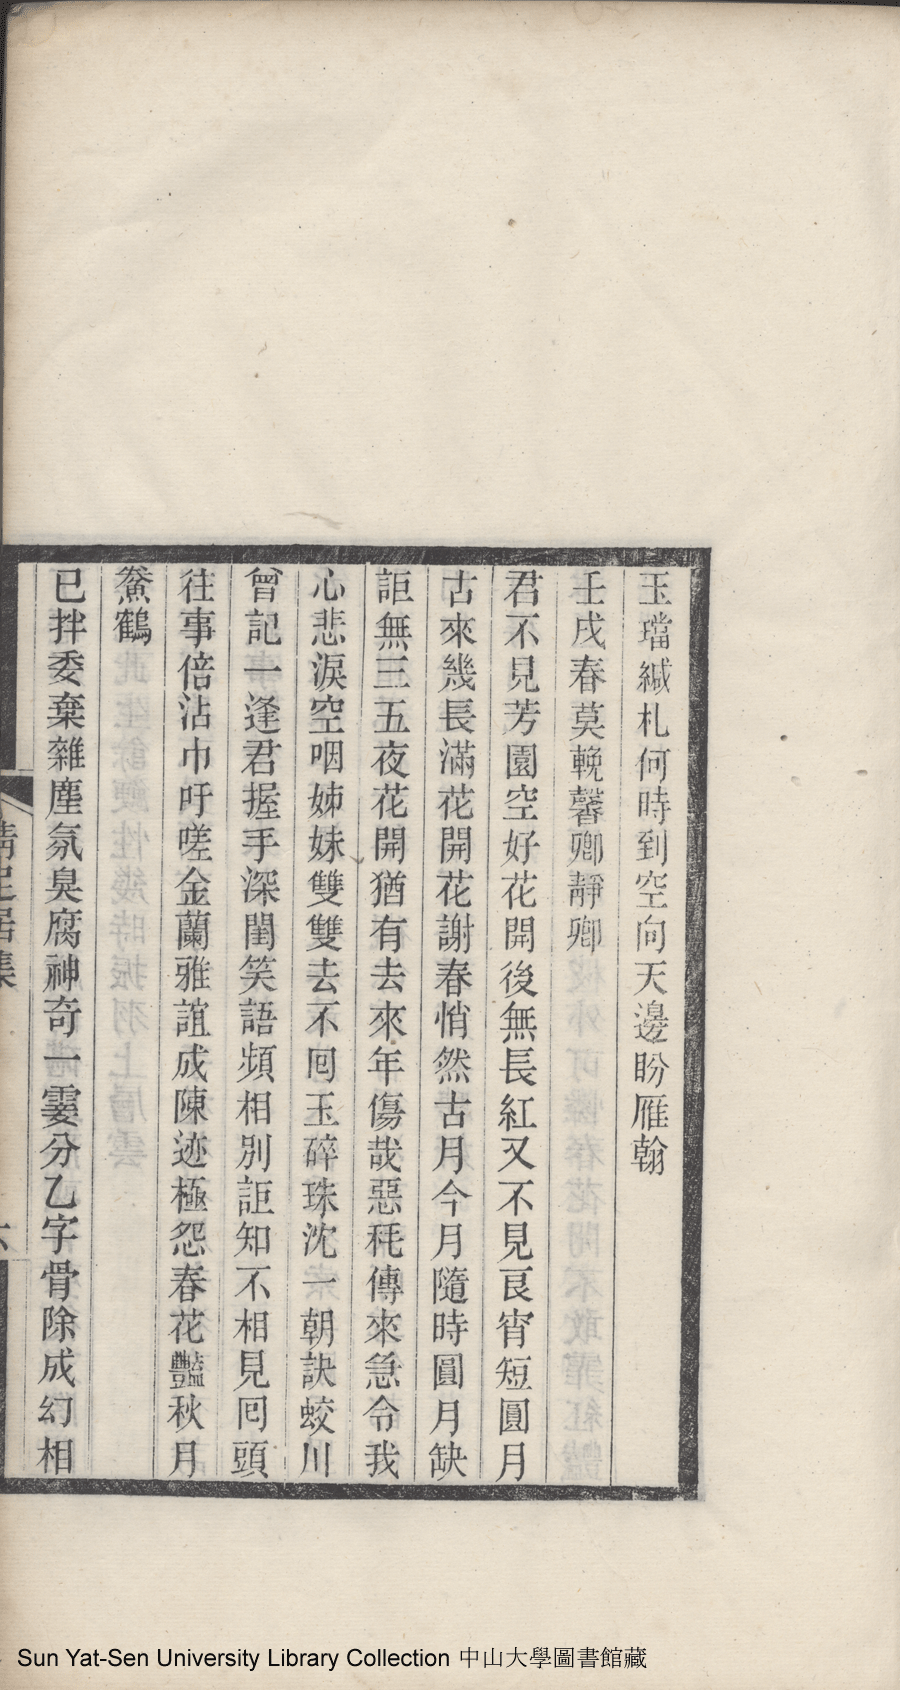 玉璫緘札何時到空向天邊盼雁翰
壬戌春莫輓馨卿靜卿
君不見芳園空好花開後無長紅又不見良宵短圓月
古來幾長滿花開花謝春悄然古月今月隨時圓月缺
詎無三五夜花開猶有去來年傷哉惡秏傳來急令我
心悲淚空咽姊妹雙雙去不囘玉碎珠沈一朝訣蛟川
曾記一逢君握手深閨笑語頻相別詎知不相見囘頭
往事倍沾巾吁嗟金蘭雅誼成陳迹極怨春花豔秋月
鮝鶴
已拌委棄雜塵氛臭腐神奇一霎分乙字骨除成幻相
清足居集
六
Sun Yat-Sen University Library Collection 中山大學圖書館藏